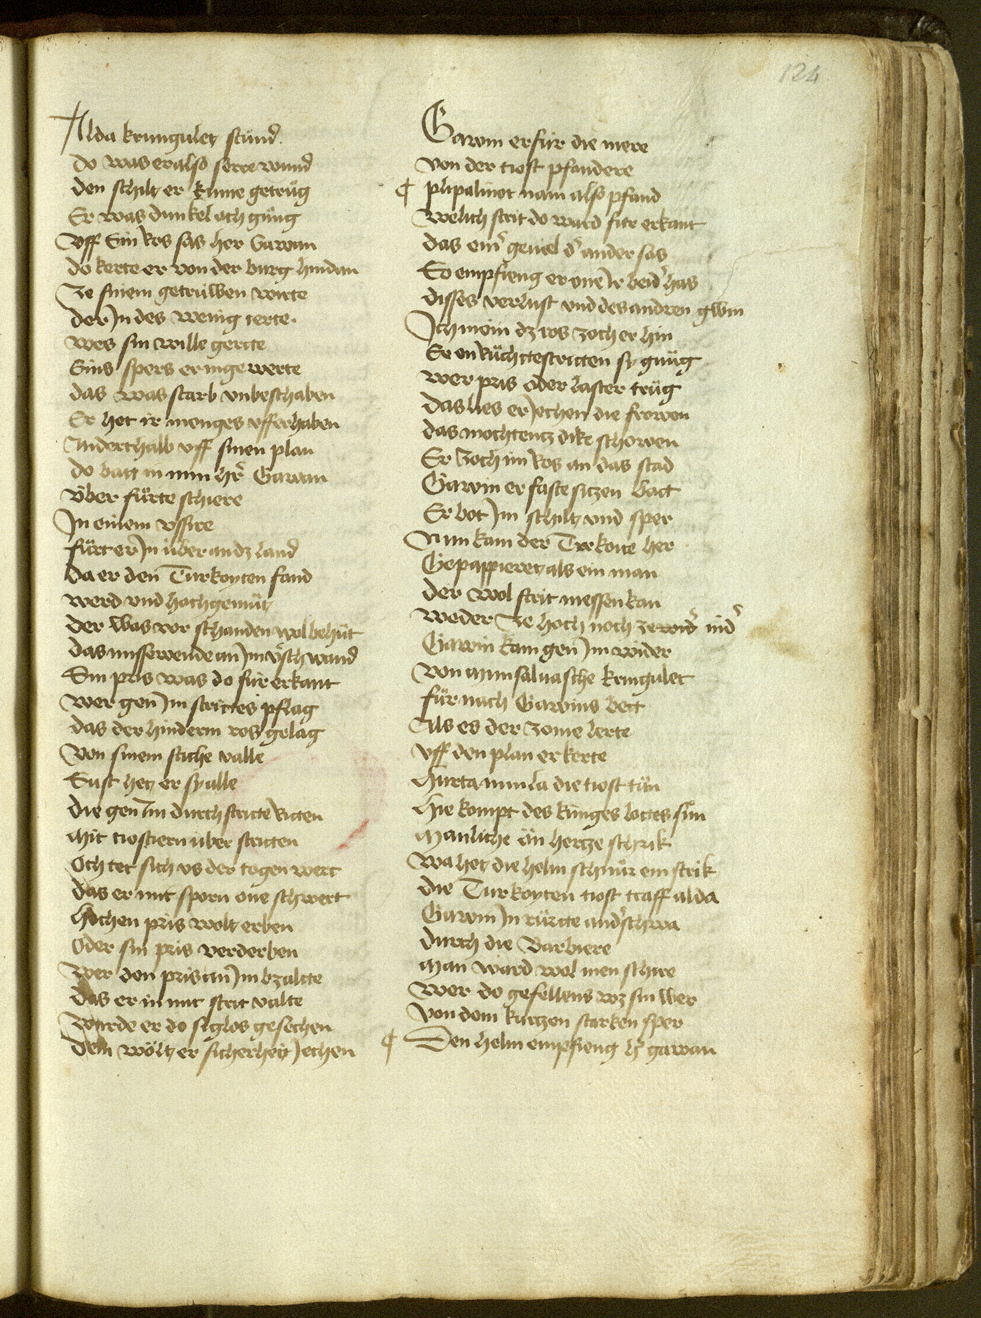 124
Alda kringulet stuͦnd
do was er also serre wund
den schilt er kume getruͦg
Er was dunkel och gnuͦg
Vff Sin Ros sas her Gawan
do kerte er von der burg hindan
Ze sinem getrúwen wirte
der Jn des wenig ierte
wes sin wille gerte
Eins spers er inge werte
das was starb vnbeschaben
Er het ir menges vfferhaben
Anderthalb vff sinen plan
do batt in min hr̄ Gawan
Vͤber fuͤrte schiere
Jn einem vssire
fuͤrt er Jn úber an dz land
da er den Turkoyten fand
werd vnd hochgemuͤt
der was vor schanden wol behuͤt
das missewende an Jm vˢschwand
Sin pris was do fúr erkant
wer gen̄ Jm strites pflag
das der hinderm ros gelag
Von sinem stiche valle
Sust het er sy alle
die gen̄ Jm durch strite riten
Mit tiostiern úber striten
Och tet sich vs der tegen wert
das er mit sporn one schwert
hochen pris wolt erben
Oder sin pris verderben
Wer den pris an̄ Jm bzalte
Das er in mit strit valte
Wurde er do siglos gesechen
Dem woͤlt er sicherheit Jechen
Gawin erfuͦr die mere
Von der tiost pfandere
¶ plipalinot nam also pfand
Welich strit do ward fúr erkant
das einˢ geuiel dˢ ander sas
So empfieng er one Jr beidˢ has
disses verlust vnd des andren gwin
Jch mein dz ros zoch er hin
Er en Ruͦchte stritten sy gnuͦg
wer pris oder laster truͦg
Das lies er Jechen die frowen
das mochtentz dike schowen
Er zoch im Ros an das stad
Gawin er faste sitzen batt
Er bot Jm schilt vnd sper
Nun kam der Turkoite her
Gepappieret als ein man
der wol strit messen kan
Weder ze hoch noch ze nidˢ
Gawin kam gen̄ Jm wider
Von munsaluasche kringulet
fuͤr nach Gawins bett
Als es der zome lerte
vff den plan er kerte
Hurta nun la die tiost tuͦn
Hie kompt des kúnges lottes suͦn
Manliche on hertze schrik
Wa het die helm schnuͦr ein strik
die Turkoyten tiost traff alda
Gawin Jn ruͦrte andˢschwa
durch die Barbiere
Man ward wol inen schire
Wer do gefellens wz sin wer
Von dem kurtzen starken sper
¶ Den helm empfieng hˢ gawan